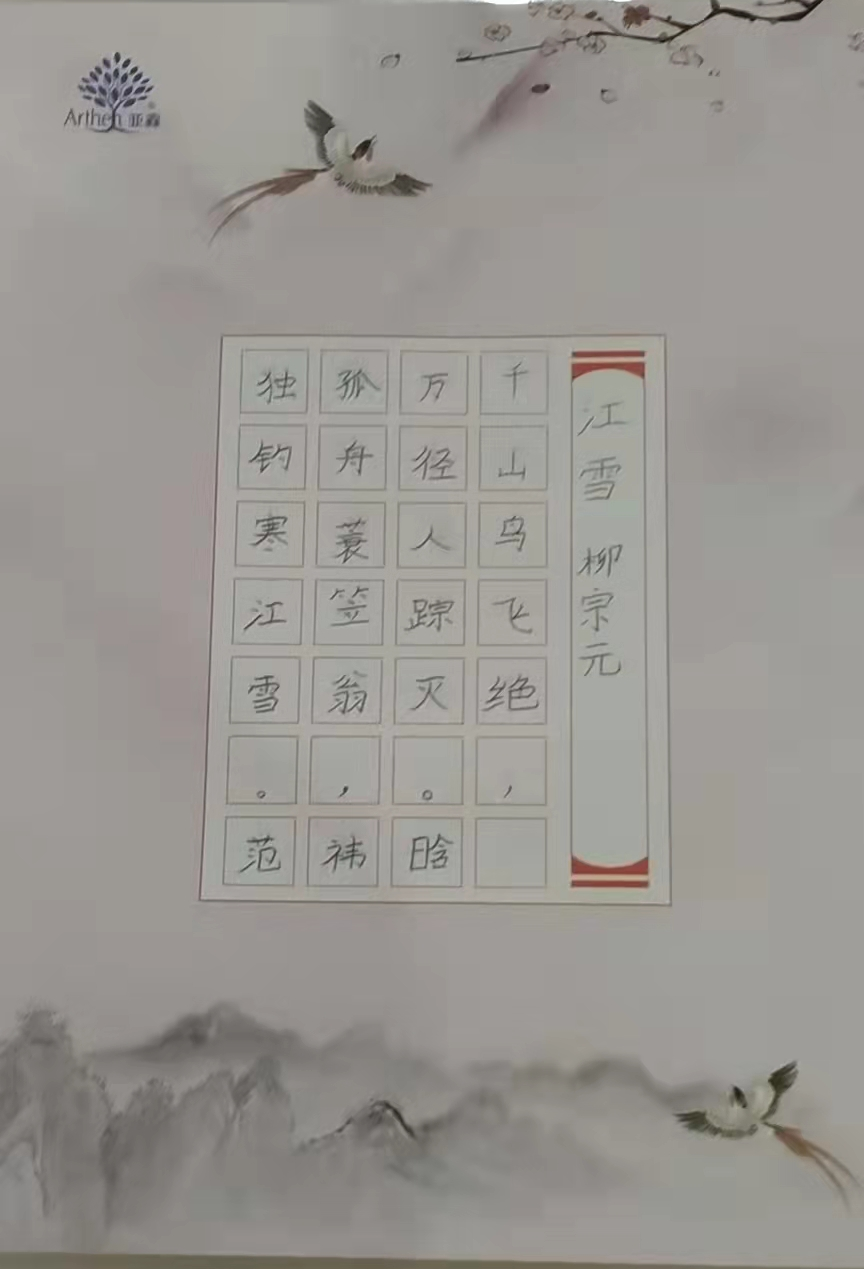 Arthen 亚森
江雪 柳宗元
千山鸟飞绝，
万径人踪灭。
孤舟蓑笠翁，
独钓寒江雪。
范祎晗